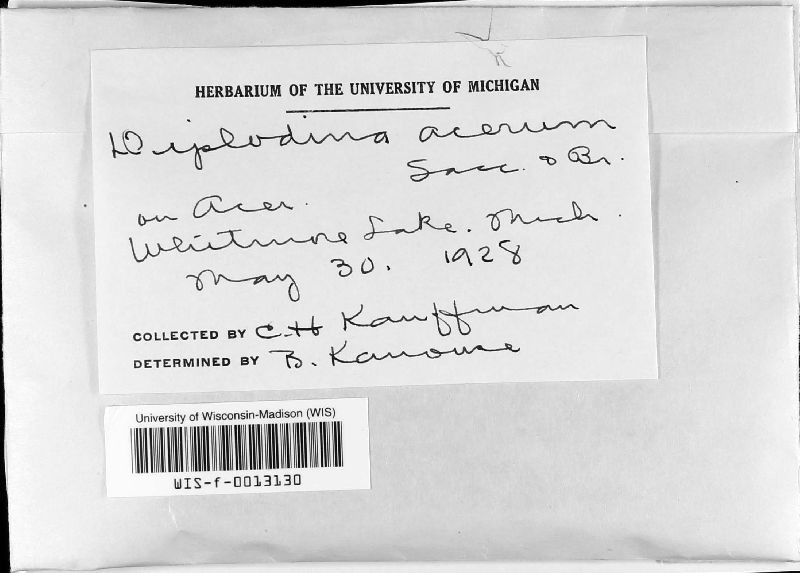 HERBARIUM OF THE UNIVERSITY OF MICHIGAN
Diplodina acerum
Sacc. & Br.
on Acer.
Whitmore Lake. Mich.
May 30. 1928
COLLECTED BY C. H Kauffman
DETERMINED BY B. Kanouse
University of Wisconsin-Madison (WIS)
WIS-f-0013130